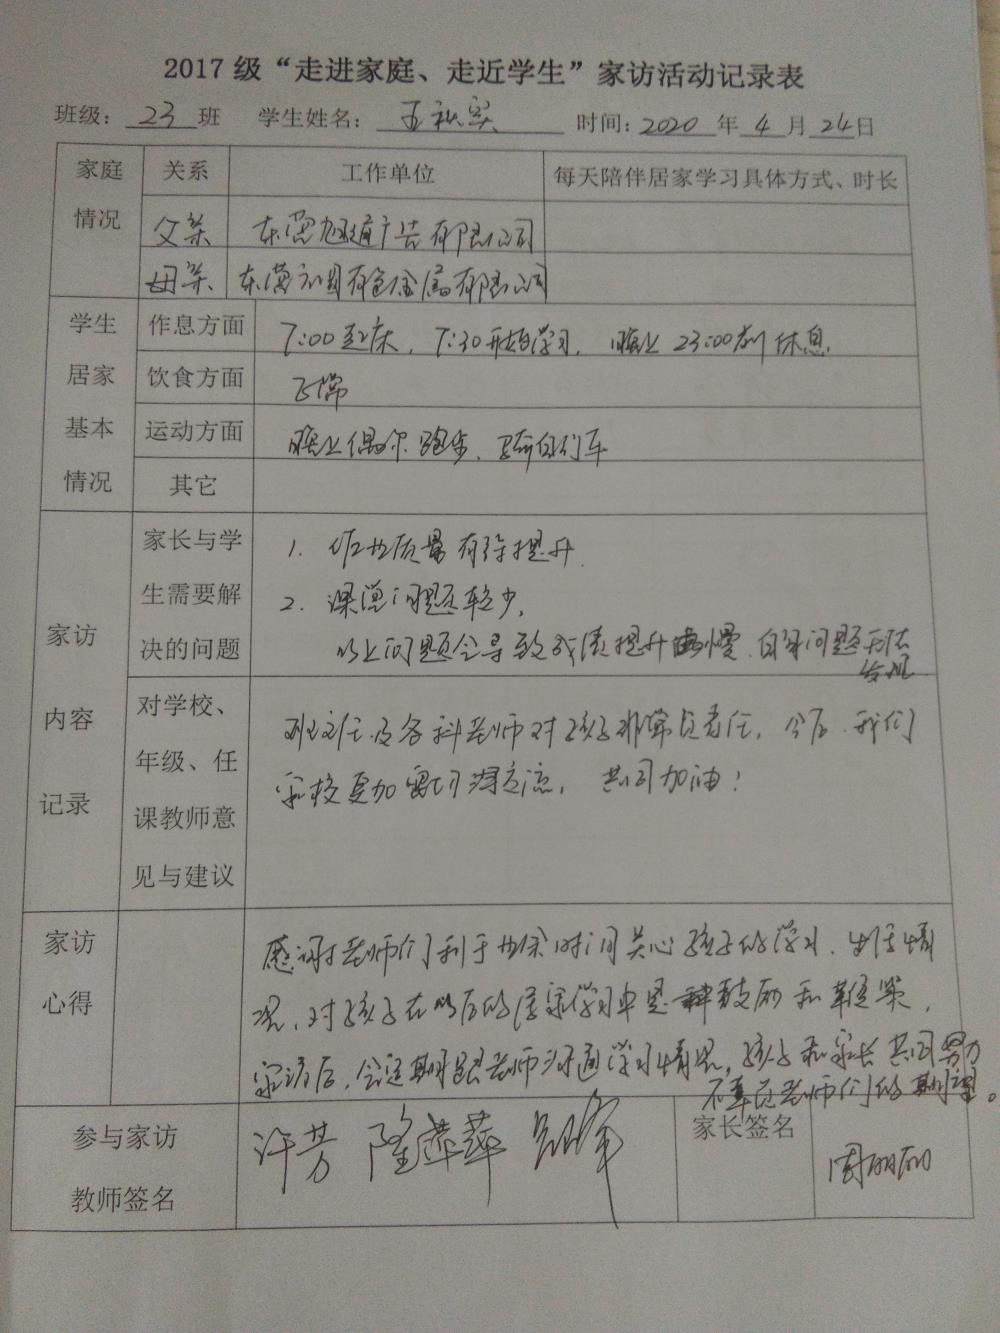 2017 级“走进家庭、走近学生”家访活动记录表
班级: 23 班 学生姓名: 王秋实 时间: 2020 年 4 月 24 日
家庭情况 关系 工作单位 每天陪伴居家学习具体方式、时长
父亲 东营旭通广告有限公司
母亲 东营 有色金属有限公司
学生居家基本情况 作息方面 7:00起床, 7:30开始学习, 晚上 23:00前休息
饮食方面 正常
运动方面 晚上偶尔跑步、骑自行车
其它
家访内容记录
家长与学生需要解决的问题
1. 作业质量有待提升.
2. 课堂问题较少,
以上问题会导致成绩提升缓慢, 自身问题无法
发现
对学校、年级、任课教师意见与建议
班主任及各科老师对孩子非常负责任, 今后, 我们
家校更加密切沟通交流, 共同加油!
家访心得
感谢老师们利于业余时间关心孩子的学习、生活情
况, 对孩子在以后的居家学习中是一种鼓励和鞭策,
家访后, 会定期跟老师沟通学习情况, 孩子和家长共同努力
不辜负老师们的期望。
参与家访教师签名 许芳 隆萍萍 家长签名
周丽丽